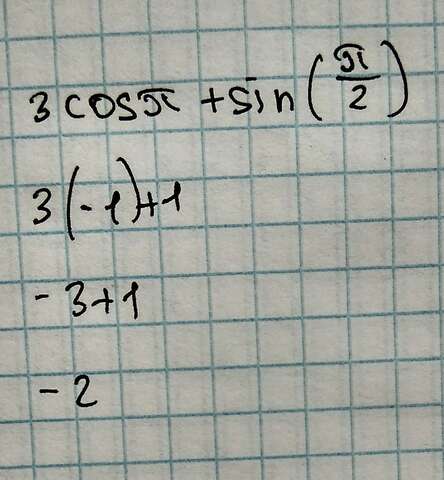 3cosπ + sin(π/2)
3(-1)+1
-3+1
-2